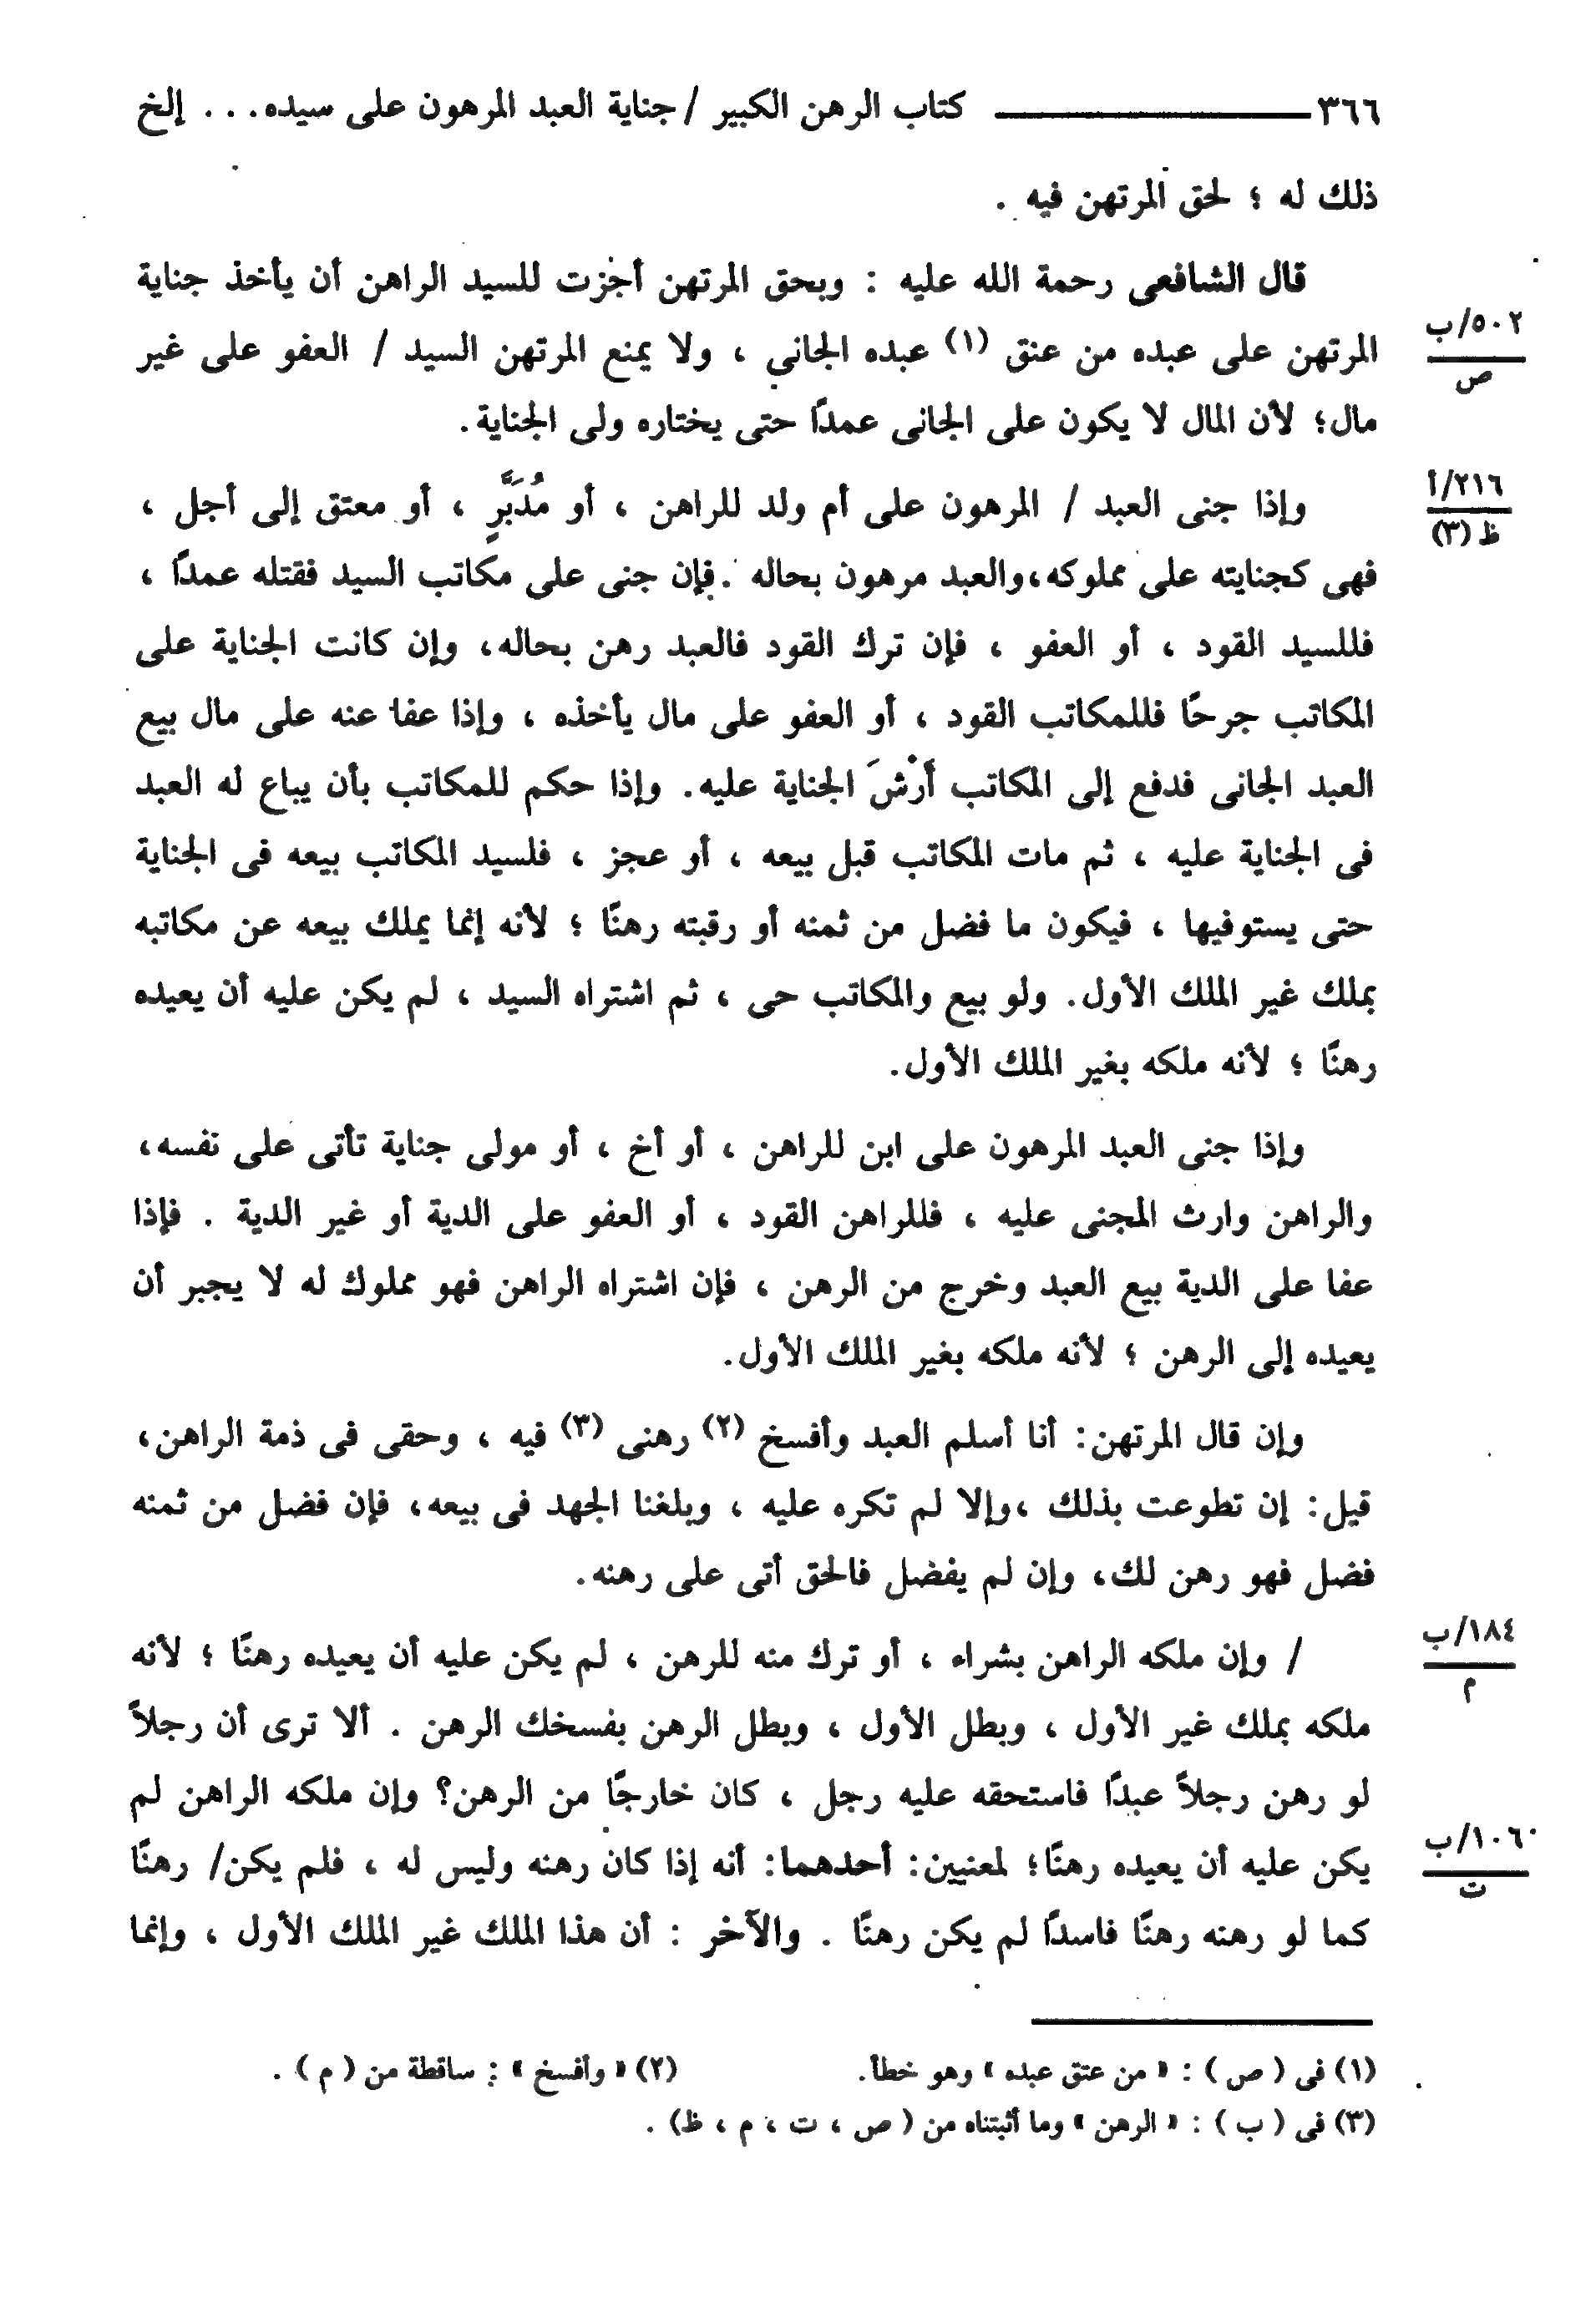 ٣٦٦ كتاب الرهن الكبير / جناية العبد المرهون على سيده . . . إلخ
ذلك له ؛ لحق المرتهن فيه .
قال الشافعى رحمة الله عليه : وبحق المرتهن أجزت للسيد الراهن أن يأخذ جناية
المرتهن على عبده من عنق (١) عبده الجانى ، ولا يمنع المرتهن السيد / العفو على غير
٥٠٢/ب
ص
مال؛ لأن المال لا يكون على الجانى عمدًا حتى يختاره ولى الجناية.
وإذا جنى العبد / المرهون على أم ولد للراهن ، أو مُدَبَّرٍ ، أو معتق إلى أجل ،
٢١٦/أ
ظ (٣)
فهى كجنايته على مملوكه، والعبد مرهون بحاله . فإن جنى على مكاتب السيد فقتله عمدًا ،
فللسيد القود ، أو العفو ، فإن ترك القود فالعبد رهن بحاله، وإن كانت الجناية على
المكاتب جرحًا فللمكاتب القود ، أو العفو على مال يأخذه ، وإذا عفا عنه على مال بيع
العبد الجانى فدفع إلى المكاتب أَرْشَ الجناية عليه. وإذا حكم للمكاتب بأن يباع له العبد
فى الجناية عليه ، ثم مات المكاتب قبل بيعه ، أو عجز ، فلسيد المكاتب بيعه فى الجناية
حتى يستوفيها ، فيكون ما فضل من ثمنه أو رقبته رهنًا ؛ لأنه إنما يملك بيعه عن مكاتبه
بملك غير الملك الأول. ولو بيع والمكاتب حى ، ثم اشتراه السيد ، لم يكن عليه أن يعيده
رهنًا ؛ لأنه ملكه بغير الملك الأول.
وإذا جنى العبد المرهون على ابن للراهن ، أو أخ ، أو مولى جناية تأتى على نفسه،
والراهن وارث المجنى عليه ، فللراهن القود ، أو العفو على الدية أو غير الدية . فإذا
عفا على الدية بيع العبد وخرج من الرهن ، فإن اشتراه الراهن فهو مملوك له لا يجبر أن
يعيده إلى الرهن ؛ لأنه ملكه بغير الملك الأول.
وإن قال المرتهن: أنا أسلم العبد وأفسخ (٢) رهنى (٣) فيه ، وحقى فى ذمة الراهن،
قيل: إن تطوعت بذلك ،وإلا لم تكره عليه ، وبلغنا الجهد فى بيعه، فإن فضل من ثمنه
فضل فهو رهن لك، وإن لم يفضل فالحق أتى على رهنه.
/ وإن ملكه الراهن بشراء ، أو ترك منه للرهن ، لم يكن عليه أن يعيده رهنًا ؛ لأنه
١٨٤/ب
م
ملكه بملك غير الأول ، وبطل الأول ، وبطل الرهن بفسخك الرهن . ألا ترى أن رجلاً
لو رهن رجلاً عبدًا فاستحقه عليه رجل ، كان خارجًا من الرهن؟ وإن ملكه الراهن لم
يكن عليه أن يعيده رهنًا؛ لمعنيين: أحدهما: أنه إذا كان رهنه وليس له ، فلم يكن/ رهنًا
١٠٦٠/ب
ت
كما لو رهنه رهنًا فاسدًا لم يكن رهنًا . والآخر : أن هذا الملك غير الملك الأول ، وإنما
(١) فى ( ص ) : « من عتق عبده » وهو خطأ. (٢) « وأفسخ » : ساقطة من ( م ) .
(٣) فى ( ب ) : « الرهن » وما أثبتناه من ( ص ، ت ، م ، ظ) .